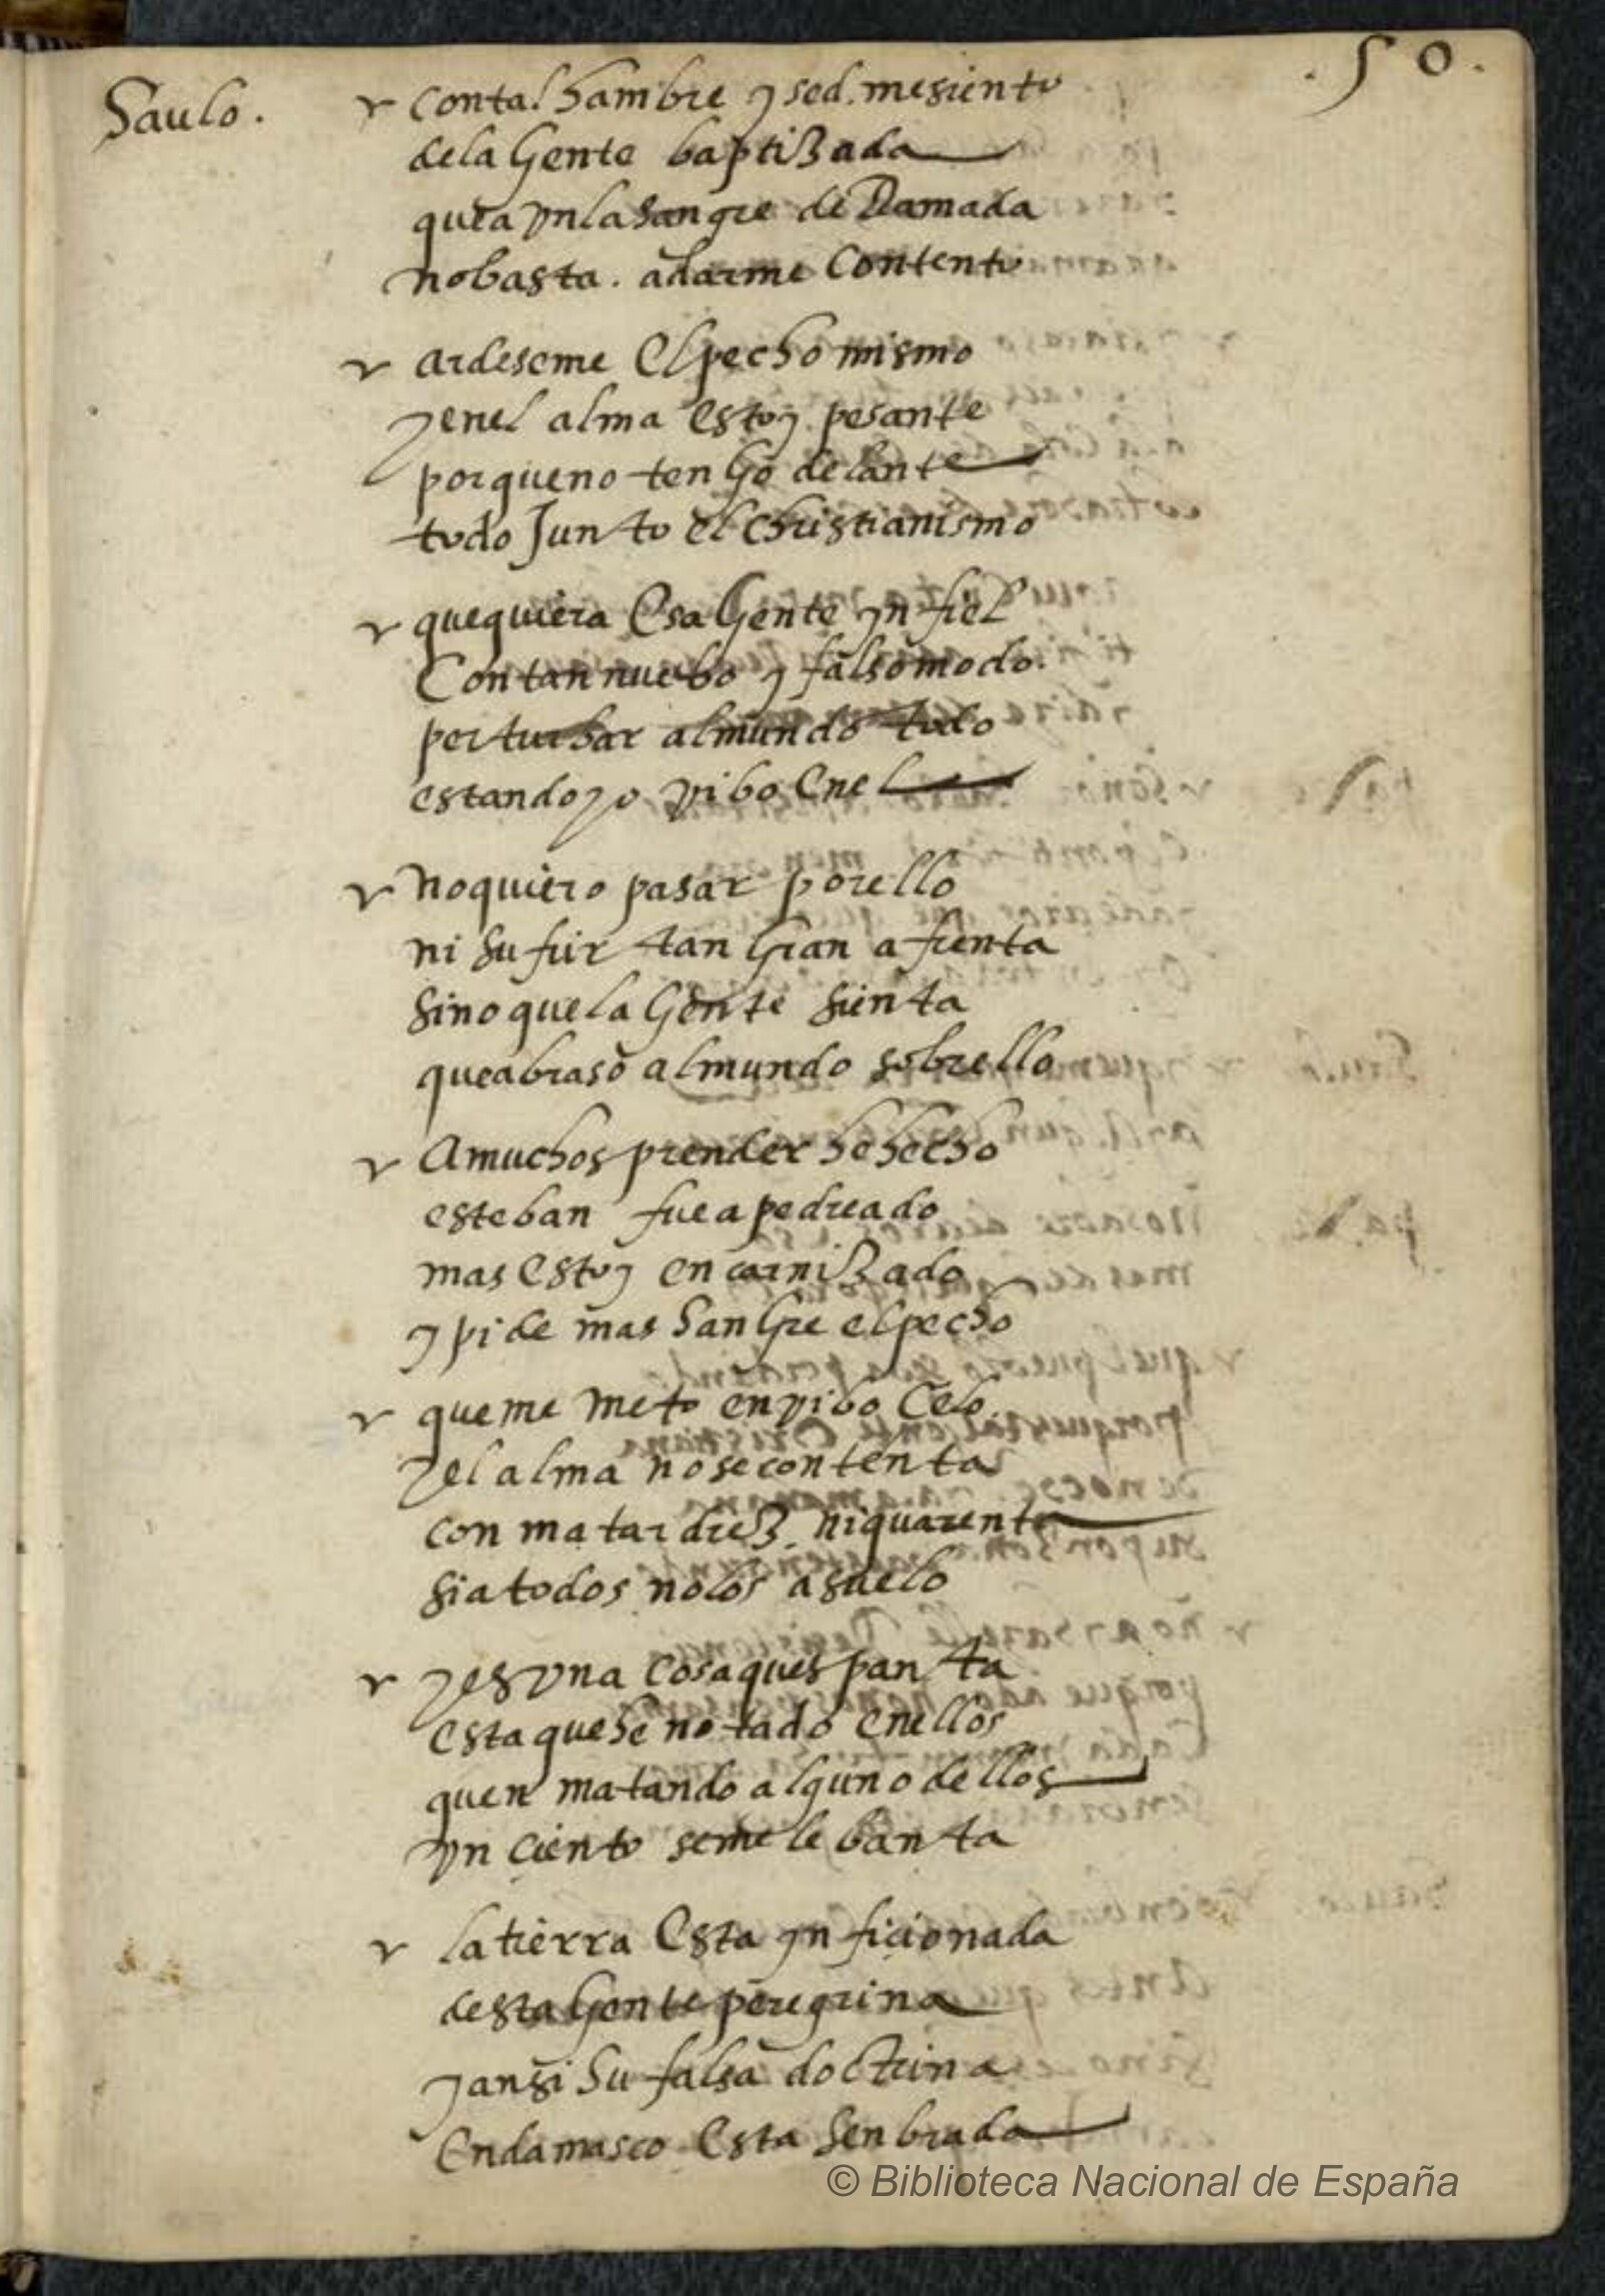 .50.
Saulo. v contal hambre y sed. mesiento
dela Gente baptizada
quea vnla sangre deRamada
nobasta. adarme contento
v ardeseme el pecho mismo
yenel alma estoy pesante
porqueno tengo delante
todo Junto el christianismo
v quequiera Esa Gente ynfiel
Contan nuebo y falso modo.
perturbar almundo todo
estandoyo vibo Enel
v noquiero pasar porello
ni sufrir tan Gran afrenta
sino quela Gente sienta
queabraso almundo sobrello
v Amuchos prender he hecho
esteban fue apedreado
mas Estoy encarnizado
y pide mas sanGre elpecho
v queme meto envibo Celo
yel alma nosecontenta
con matar diez. niquarenta
siatodos nolos asuelo
v yes vna cosa quespanta
Esta quehe notado Enellos
quen matando alguno dellos
vn ciento seme lebanta
v latierra Esta ynficionada
destaGente peregrina
yansi su falsa doctrina
Endamasco Esta senbrada
© Biblioteca Nacional de España